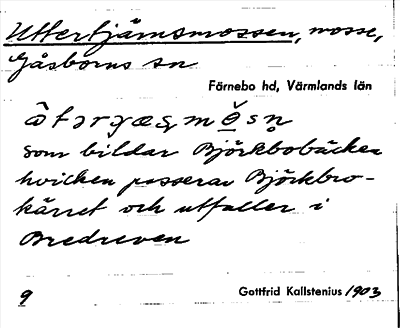 Uttertjärnsmossen, mosse,
Gåsborns sn
Färnebo hd, Värmlands län
som bildar Björkbobäcken
hvicken passerar Björkbro-
kärret och utfaller i
Bredreven
9
Gottfrid Kallstenius 1903